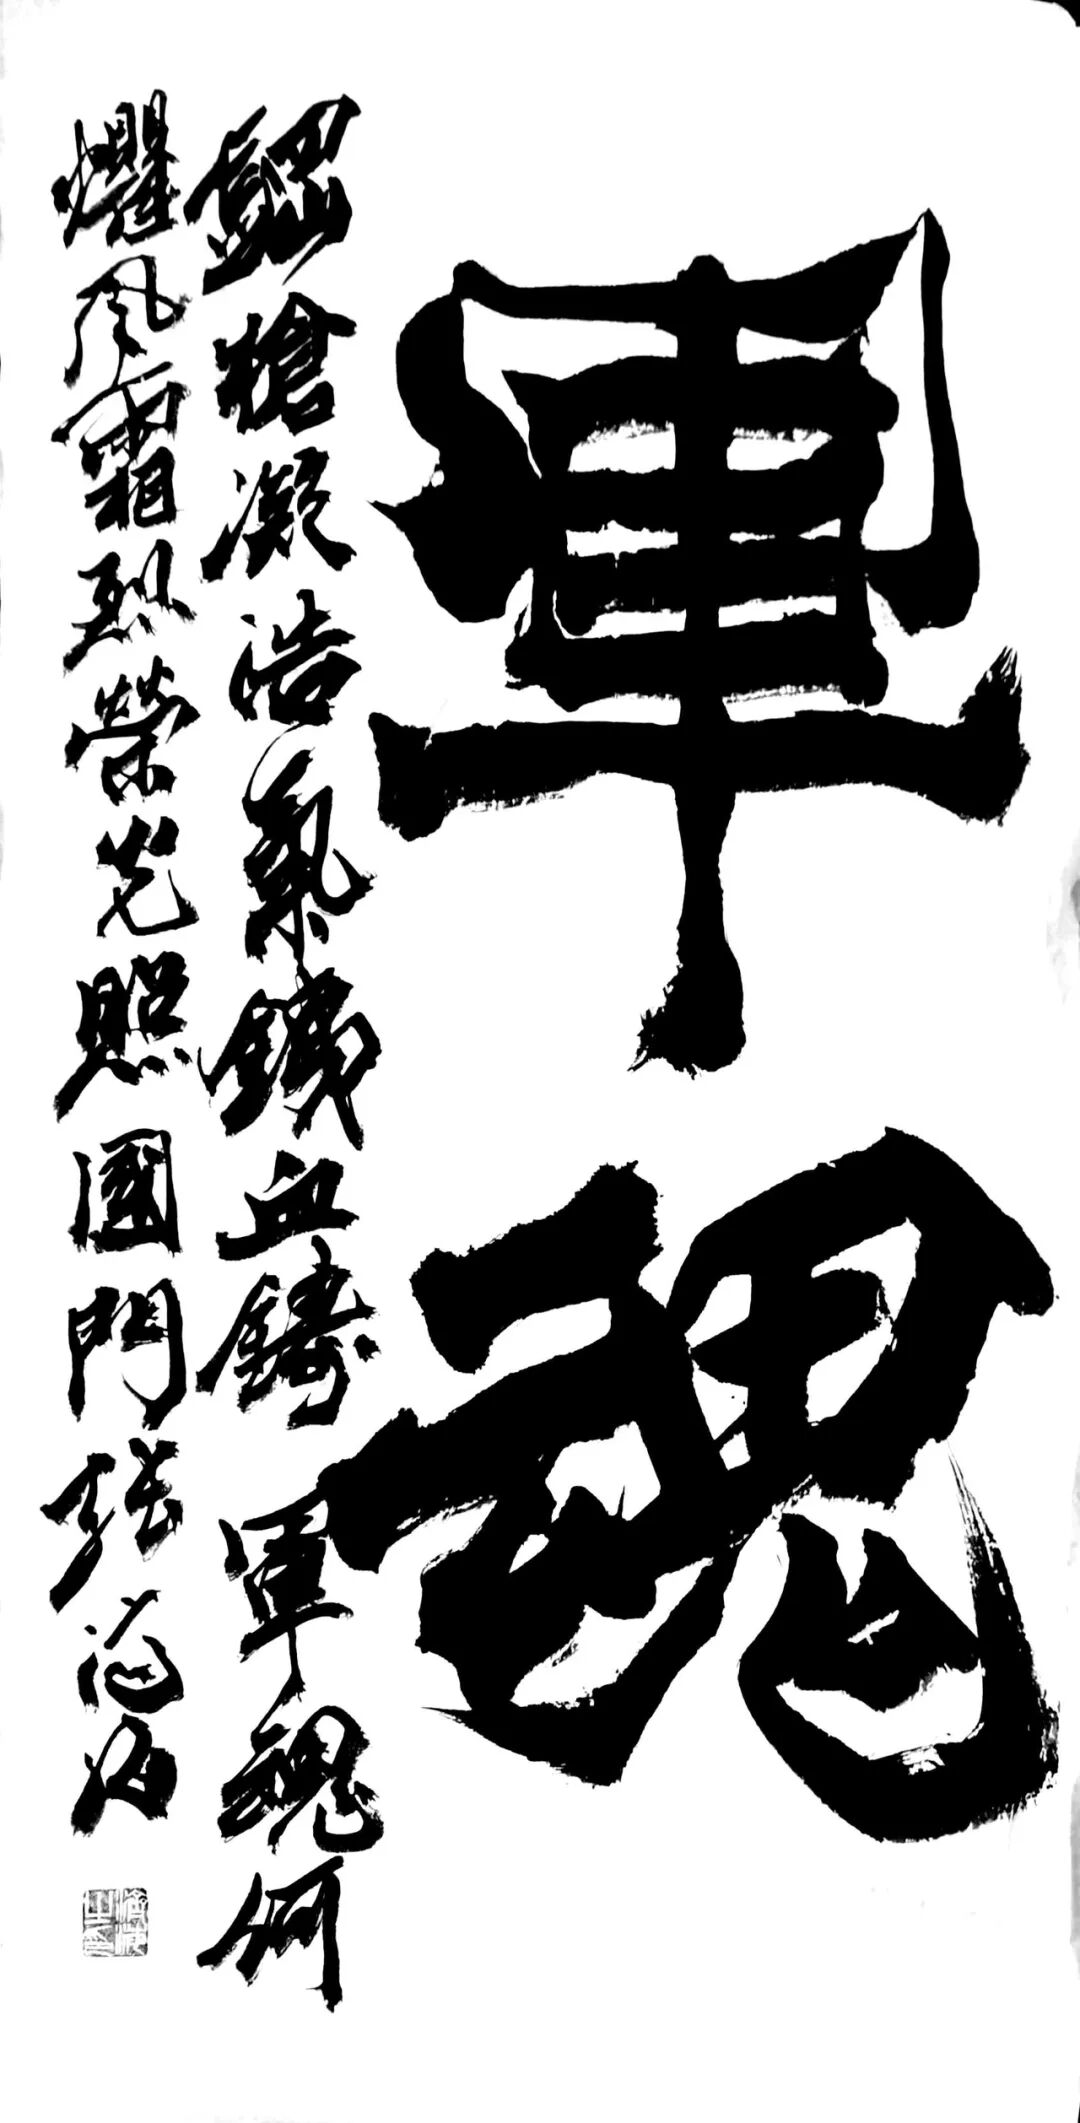 軍魂
鋼槍凝浩氣鐵血鑄軍魂何
懼風霜烈榮光照國門张